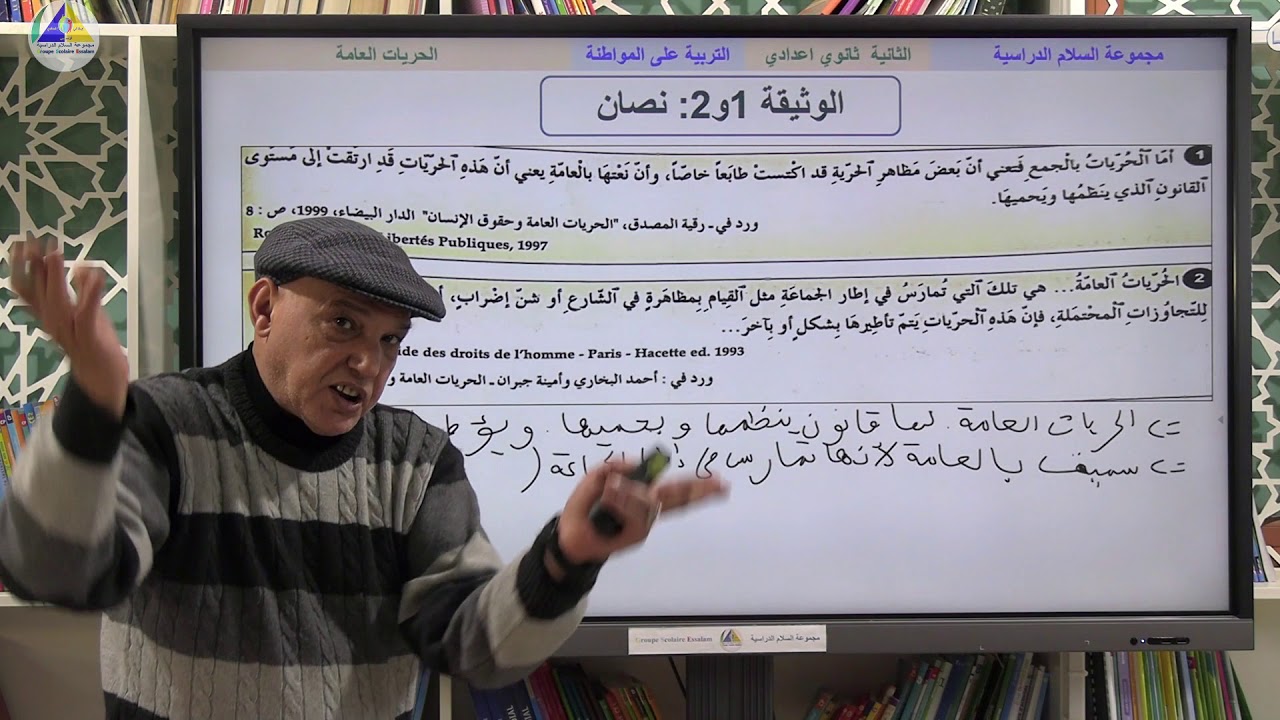 مجموعة السلام الدراسية
Groupe Scolaire Essalam
مجموعة السلام الدراسية الثانية ثانوي اعدادي التربية على المواطنة الحريات العامة
الوثيقة 1و2: نصان
1 أمَا ٱلْحُرّيَاتُ بالْجمعِ فَتعني أنّ بَعضَ مَظاهرِ ٱلحُرّيةِ قد اكْتستْ طابَعاً خاصّاً، وأنّ نَعْتهَا بالْعامّةِ يعني أنّ هَذهِ ٱلحرّيّاتِ قَدِ ارتَقَتْ إلَى مَستَوى
القانونِ ٱلذي ينَظمُها ويَحميهَا.
ورد في ـ رقية المصدق، "الحريات العامة وحقوق الإنسان" الدار البيضاء، 1999، ص : 8
Libertés Publiques, 1997
2 الحُرّياتُ العامّةُ... هي تلكَ ٱلتي تُمارَسُ في إطار الجماعَةِ مثل ٱلقيامِ بِمظاهَرةٍ في ٱلشّارعِ أو شنّ إضْرابٍ،
لِلتّجاوُزاتِ ٱلْمحْتمَلةِ، فإنّ هَذهِ ٱلْحرّياتِ يَتمّ تأطِيرهَا بِشكلٍ أو بِآخرَ...
des droits de l'homme - Paris - Hacette ed. 1993
ورد في : أحمد البخاري وأمينة جبران ـ الحريات العامة
=> الحريات العامة. لها قانون ينظمها و يحميها. و
=> سميت بالعامة لأنها تمارس في
Groupe Scolaire Essalam مجموعة السلام الدراسية